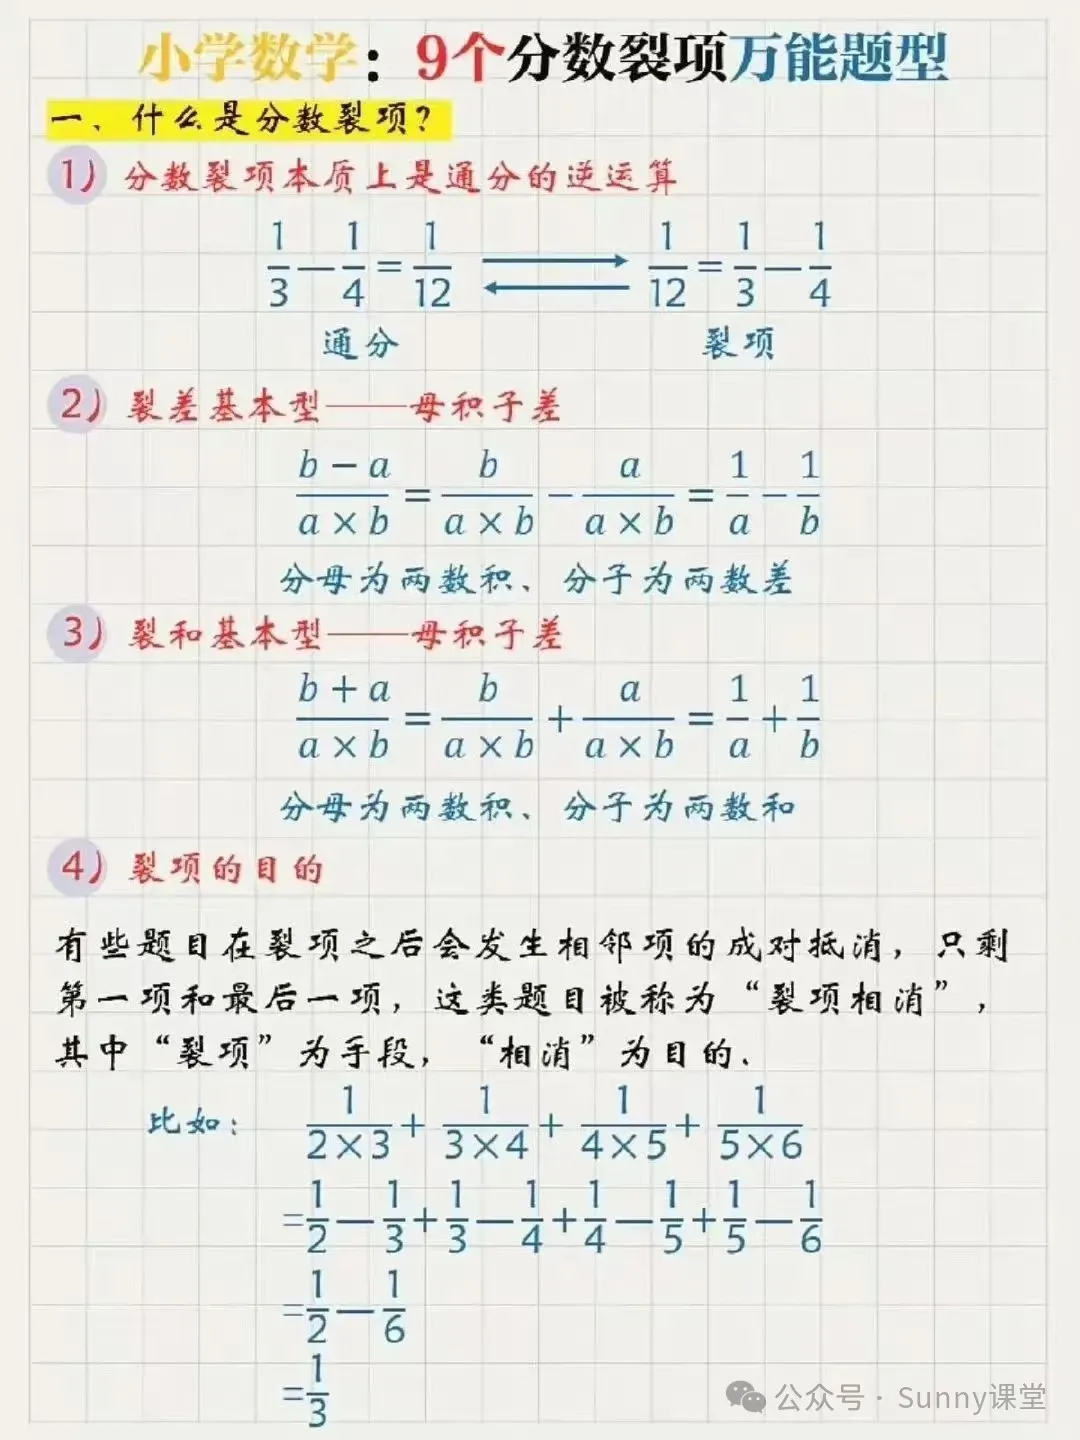 小学数学：9个分数裂项万能题型
一、什么是分数裂项？
1) 分数裂项本质上是通分的逆运算
1/3 — 1/4 = 1/12 ⇄ 1/12 = 1/3 — 1/4
通分 裂项
2) 裂差基本型——母积子差
(b − a)/(a × b) = b/(a × b) − a/(a × b) = 1/a − 1/b
分母为两数积、分子为两数差
3) 裂和基本型——母积子差
(b + a)/(a × b) = b/(a × b) + a/(a × b) = 1/a + 1/b
分母为两数积、分子为两数和
4) 裂项的目的
有些题目在裂项之后会发生相邻项的成对抵消，只剩
第一项和最后一项，这类题目被称为“裂项相消”，
其中“裂项”为手段，“相消”为目的.
比如： 1/(2×3) + 1/(3×4) + 1/(4×5) + 1/(5×6)
=1/2 — 1/3 + 1/3 — 1/4 + 1/4 — 1/5 + 1/5 — 1/6
=1/2 — 1/6
=1/3
公众号 · Sunny课堂